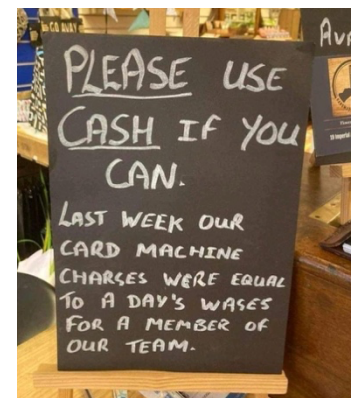 GO AWAY
PLEASE USE
CASH IF YOU
CAN.
LAST WEEK OUR
CARD MACHINE
CHARGES WERE EQUAL
TO A DAY'S WAGES
FOR A MEMBER OF
OUR TEAM.